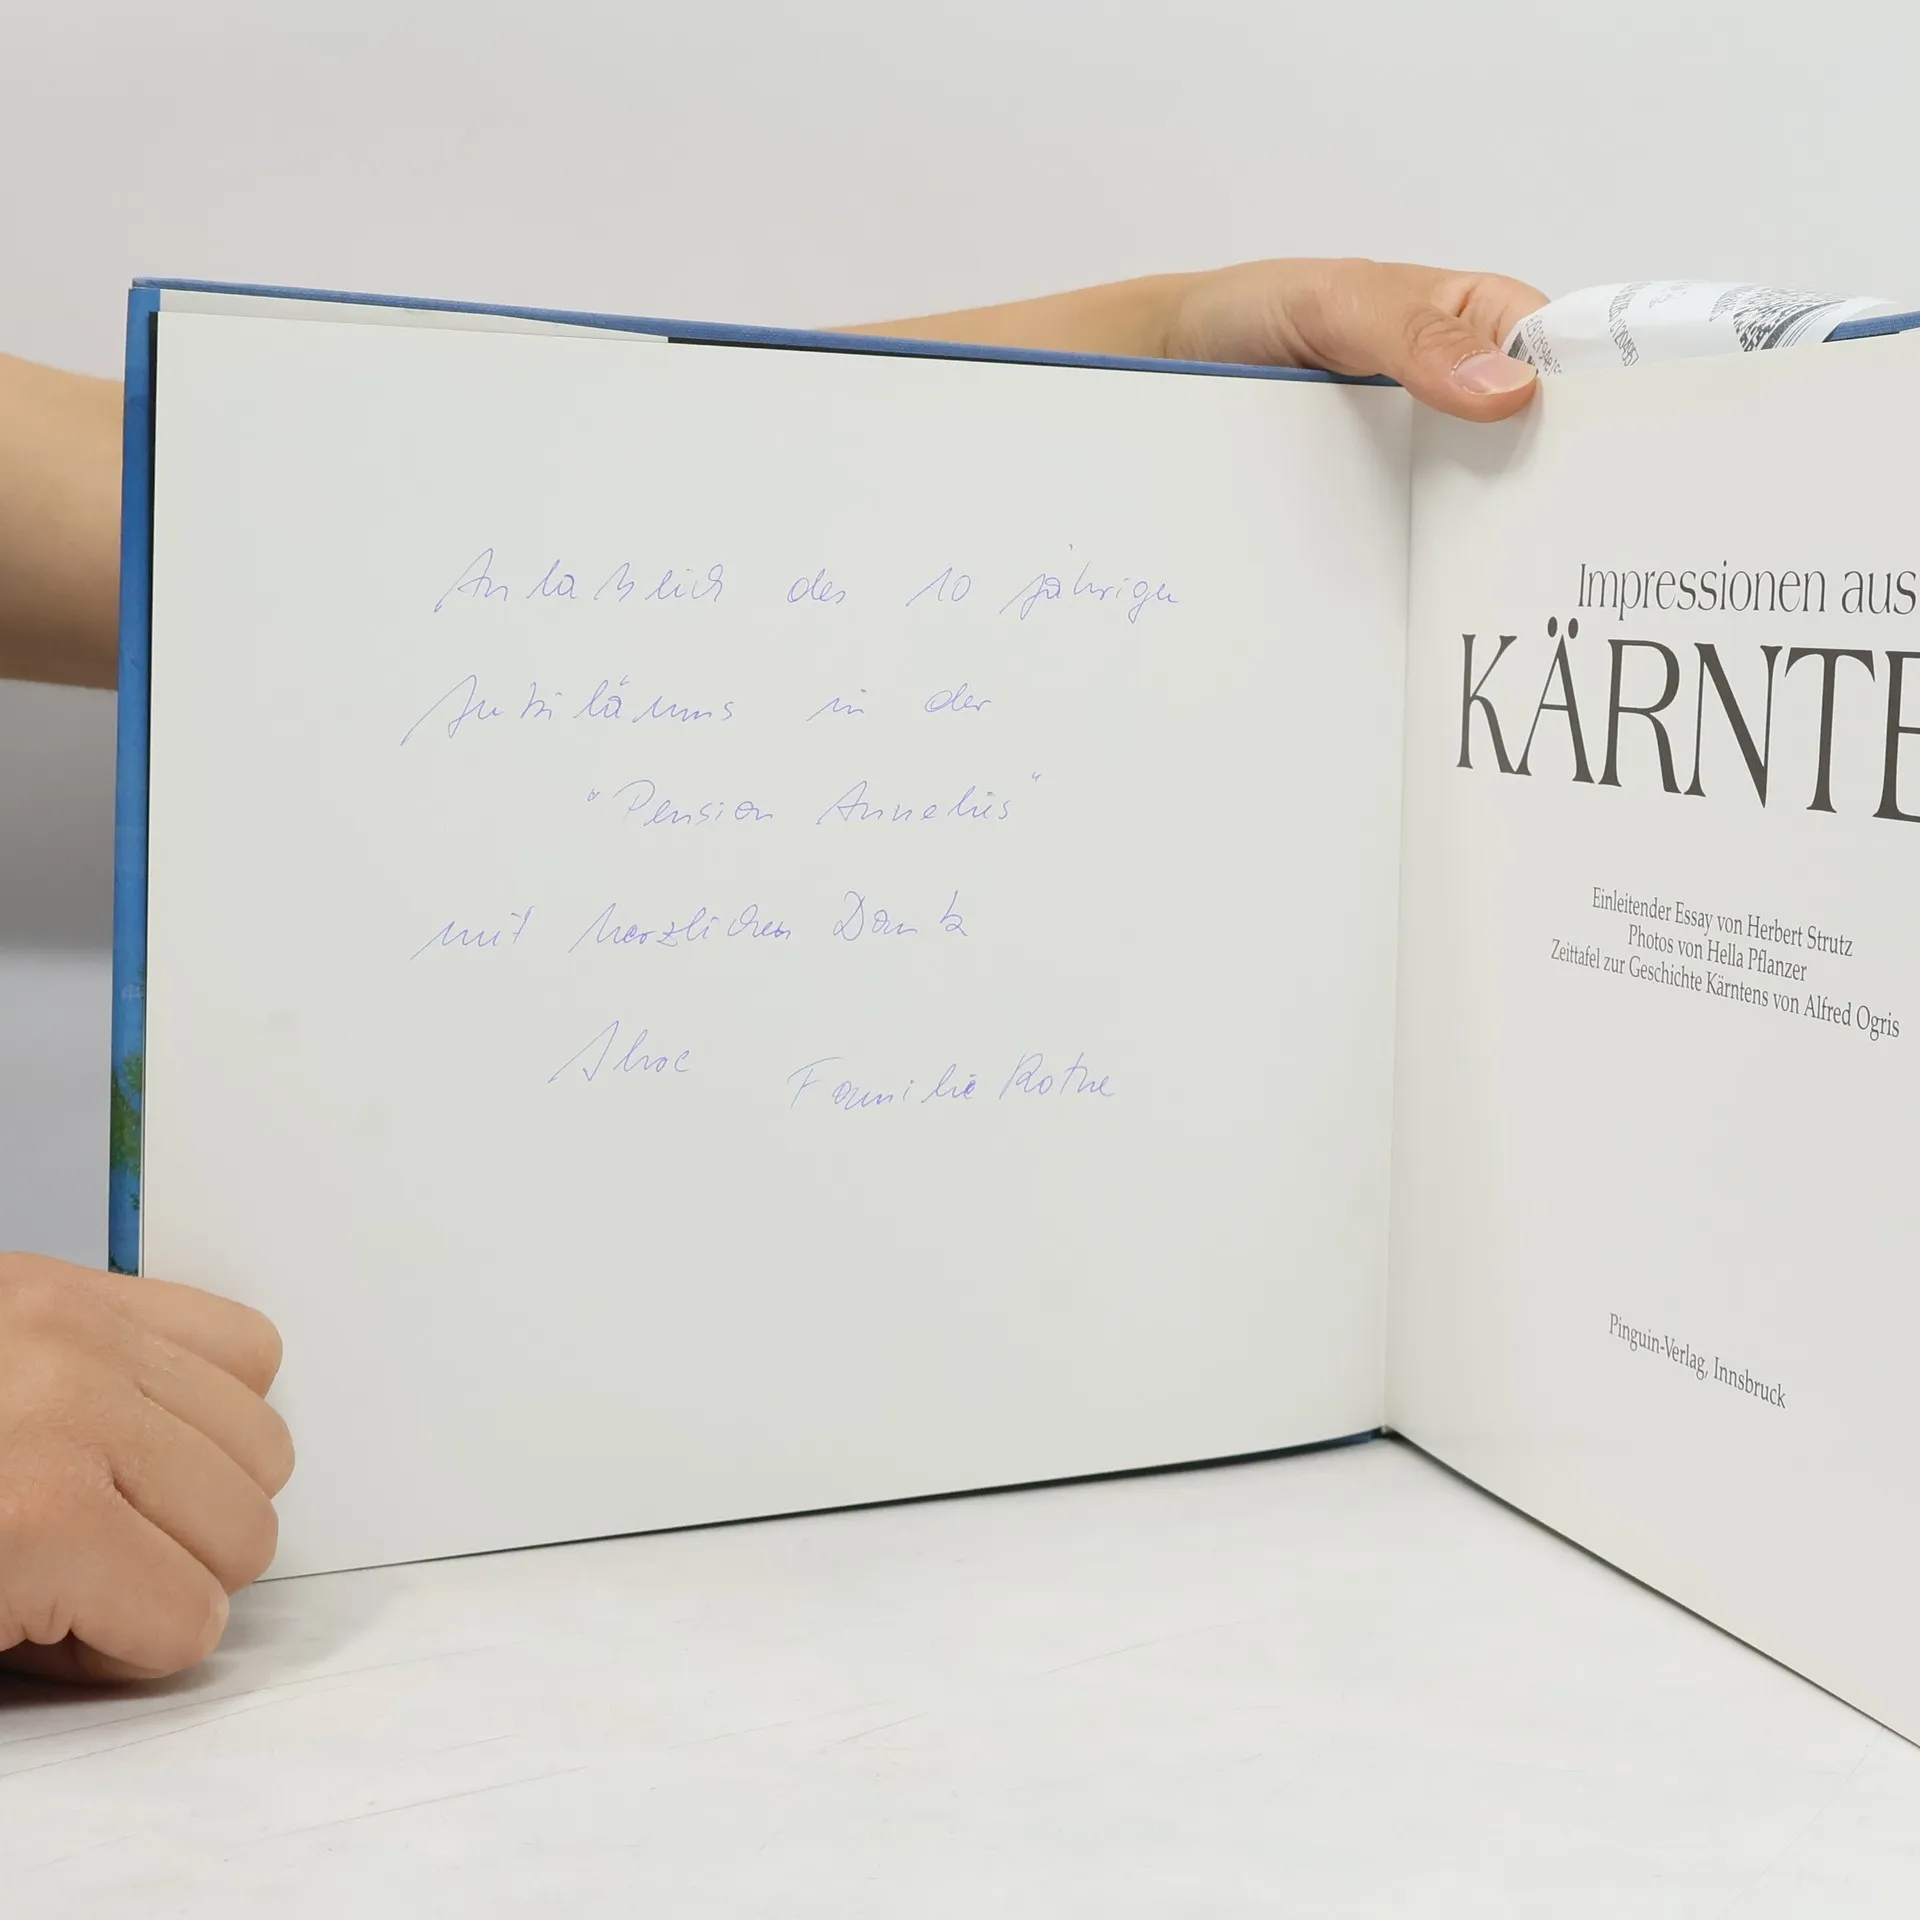 Anläßlich des 10 jährigen
Jubiläums in der
"Pension Annelies"
mit herzlichen Dank
Ihre Familie Rothe
Impressionen aus
KÄRNTE
Einleitender Essay von Herbert Strutz
Photos von Hella Pflanzer
Zeittafel zur Geschichte Kärntens von Alfred Ogris
Pinguin-Verlag, Innsbruck